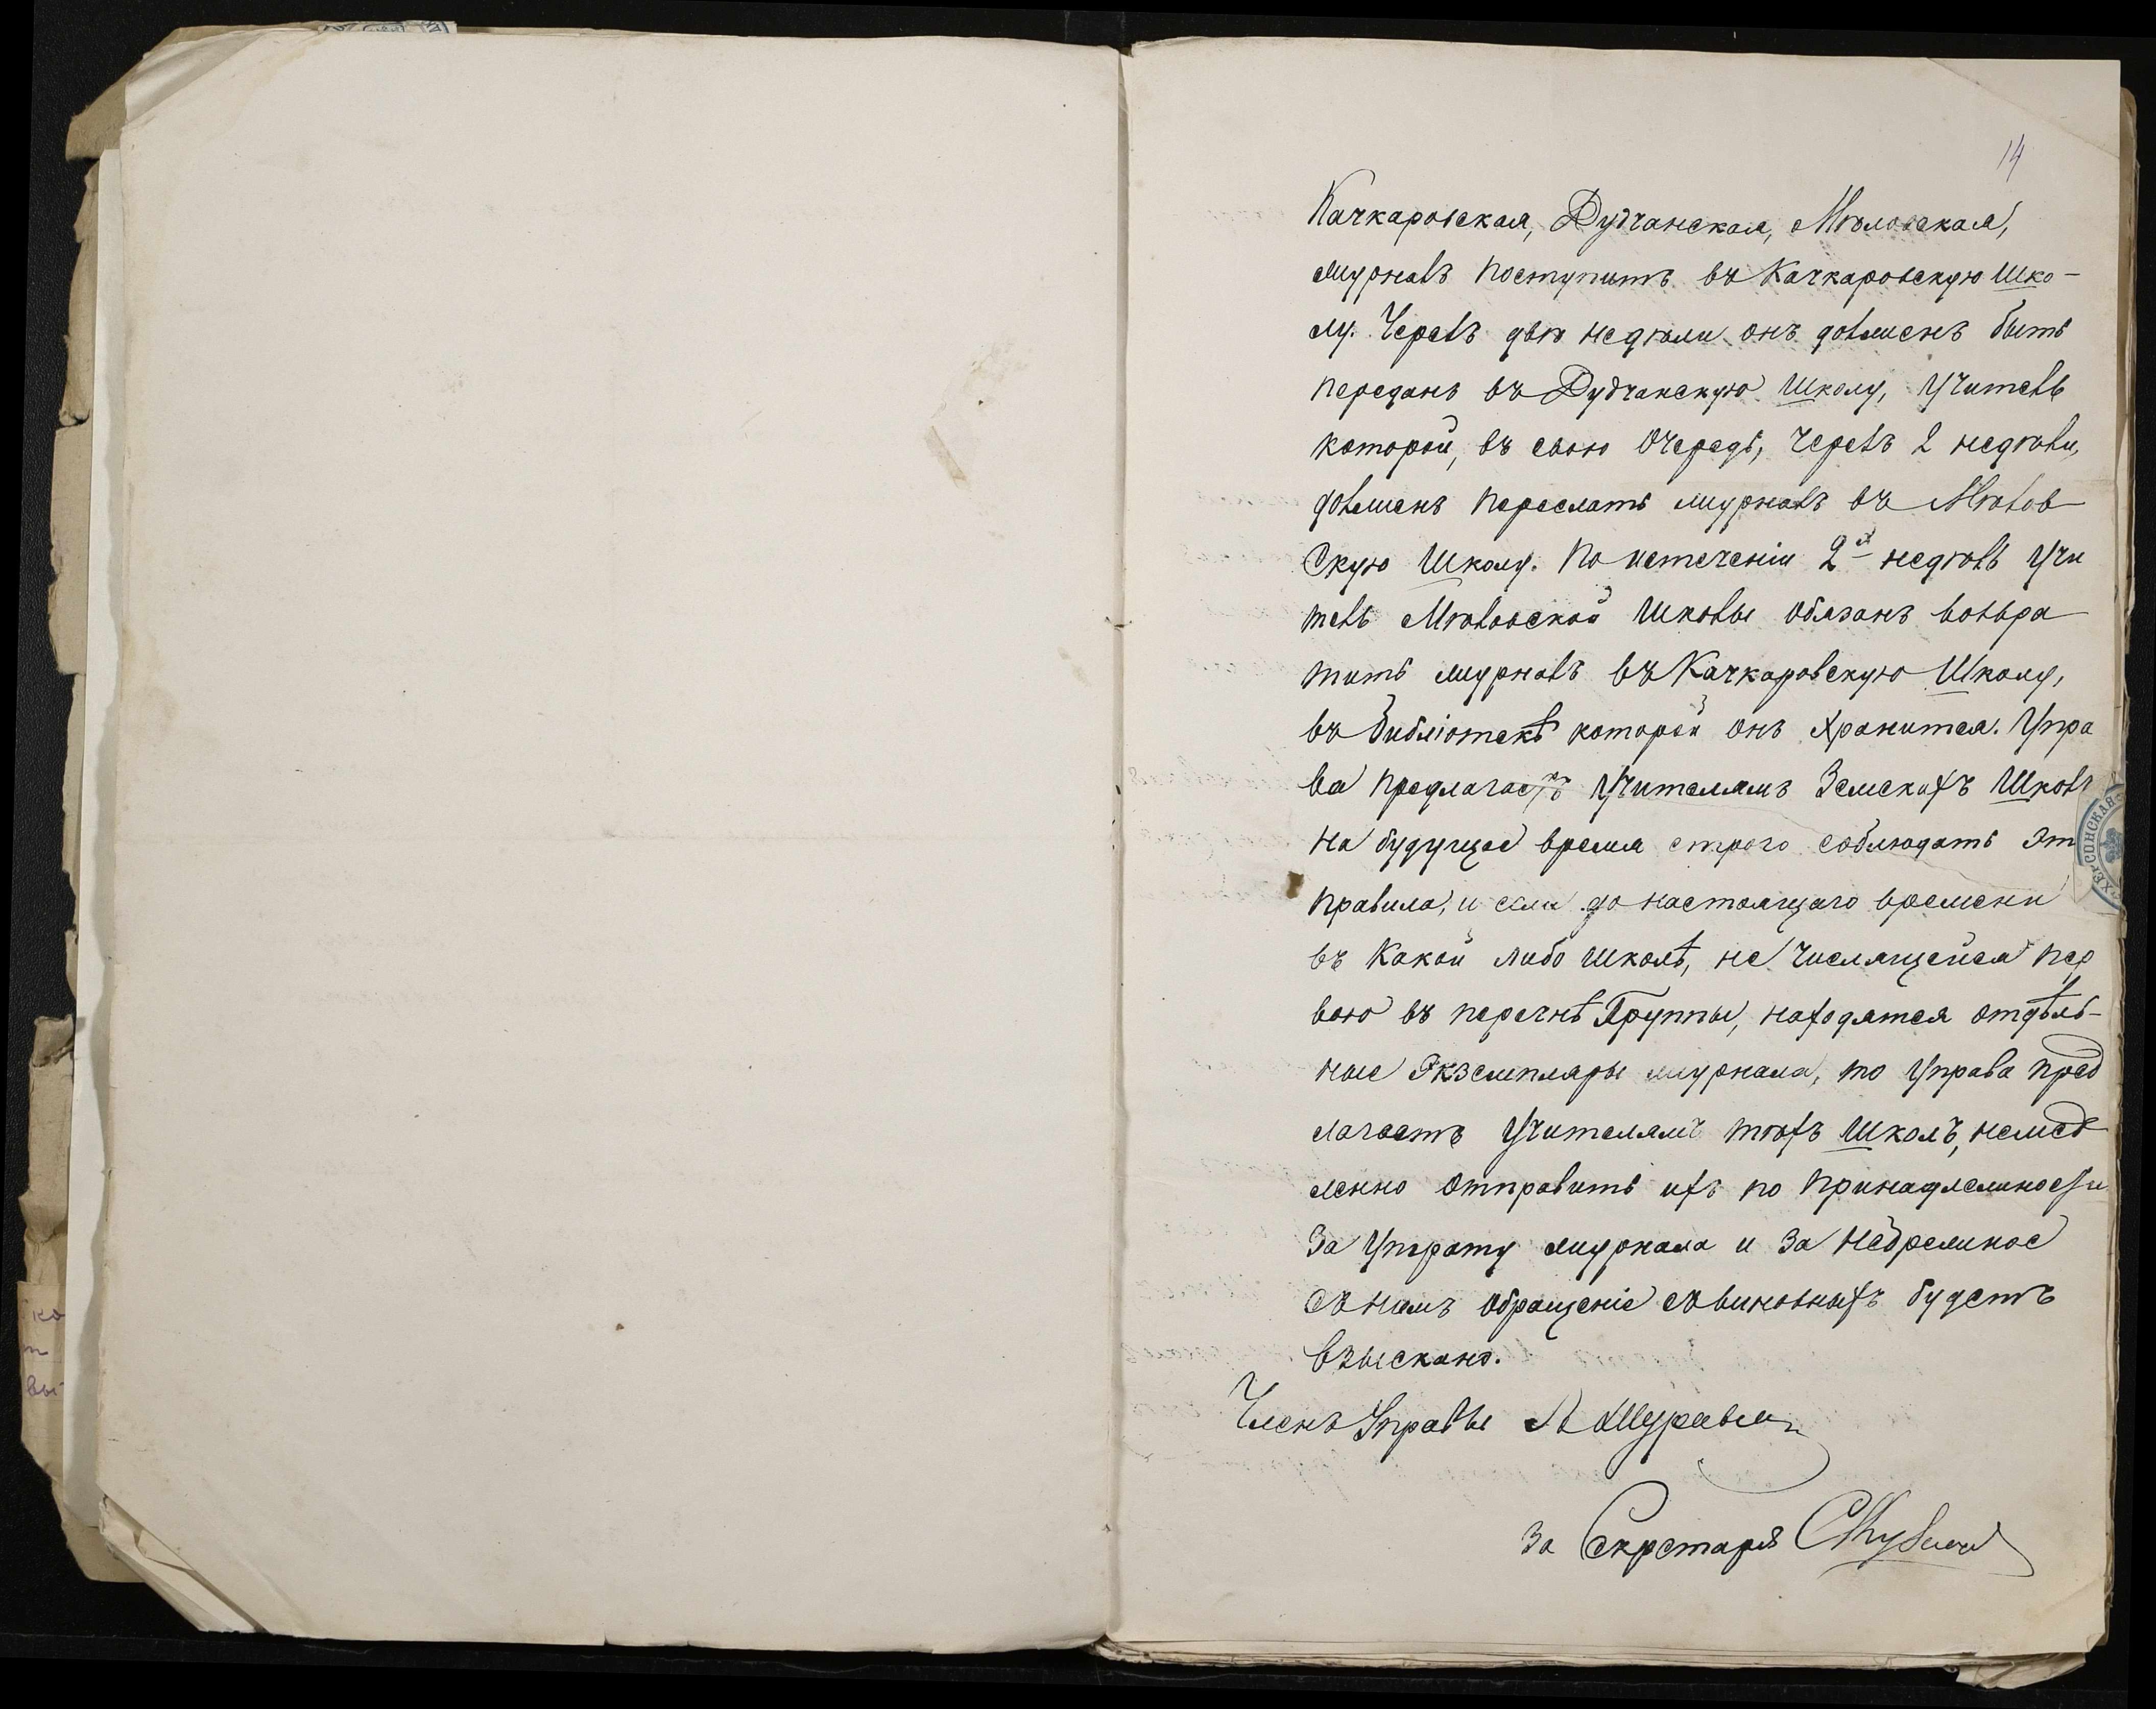 14
Качкаровская, Дудчанская, Мѣловская,
журналъ поступитъ въ Качкаровскую шко-
лу. Черезъ двѣ недѣли онъ долженъ быть
переданъ въ Дудчанскую школу, учитель
которой, въ свою очередь, черезъ 2 недѣли,
долженъ переслать журналъ въ Мѣлов
скую школу. По истеченіи 2х недѣль учи
тель Мѣловской школы обязанъ возвра
тить журналъ въ Качкаровскую школу,
въ библіотекѣ которой онъ хранится. Упра
ва предлагаетъ учителямъ земскихъ школъ
на будущее время строго соблюдать эти
правила, и если до настоящаго времени
въ какой либо школѣ, не числящейся пер
вою въ перечнѣ группы, находятся отдѣль-
ные экземпляры журнала, то Управа пред
лагаетъ учителямъ тѣхъ школъ, немед
ленно отправить ихъ по принадлежности
За утрату журнала и за небрежное
съ нимъ обращеніе съ виновныхъ будетъ
взыскано.
Членъ Управы
За Секретаря
ХЕРСОНСКАЯ
ко
вы